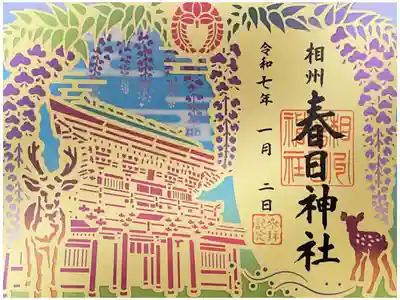 相州
春日神社
令和七年 一月 二日